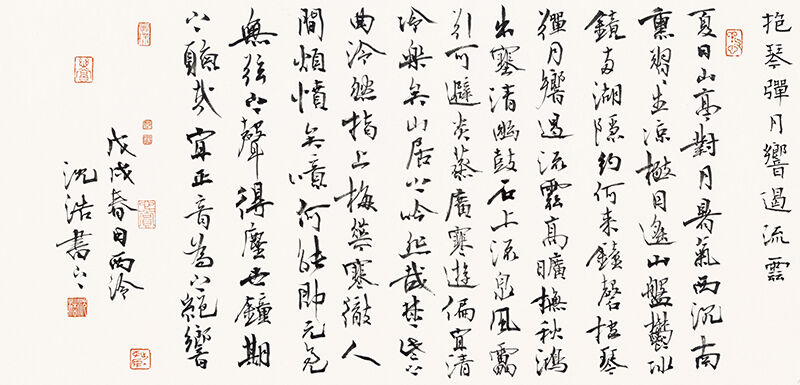 抱琴彈月響遏流雲
夏日山亭對月暑氣西沉南
熏習生涼極目遙山盤鬱冰
鏡西湖隱約何來鐘磬抱琴
彈月響遏流雲高曠撫秋鴻
出塞清幽鼓石上流泉風雷
引可避炎蒸廣寒遊偏宜清
冷樂矣山居之吟悲哉楚些之
曲泠然指上梅英寒徹人
間煩憒矣噫何能即元亮
無弦之聲得塵世鐘期
之聽哉宜正音為之絕響
戊戌春日西泠
沈浩書之